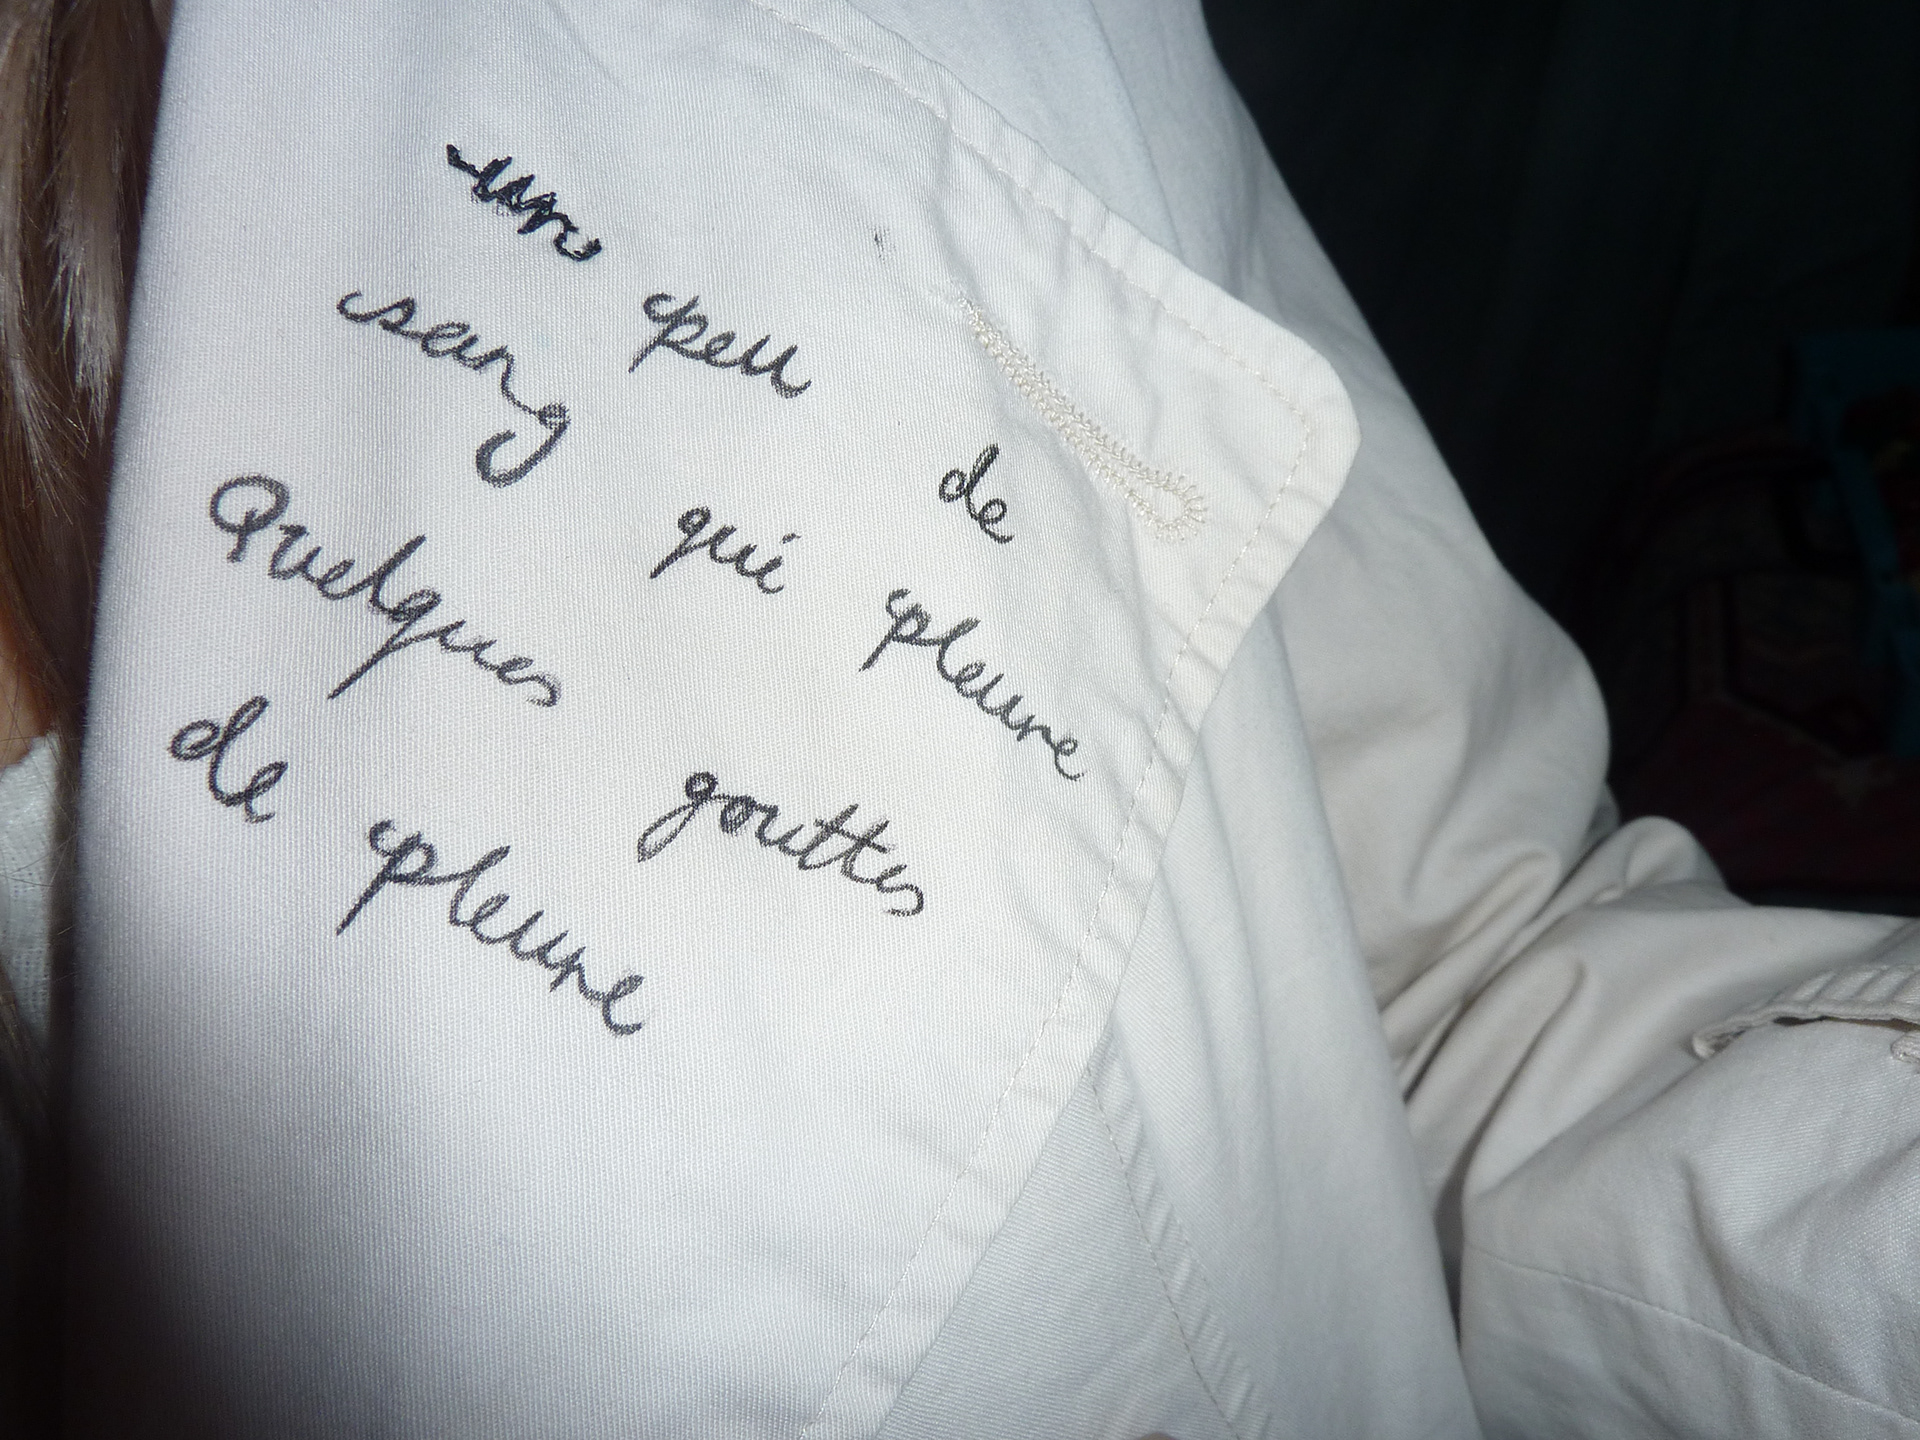 un peu de
sang qui pleure
Quelques gouttes
de pleure